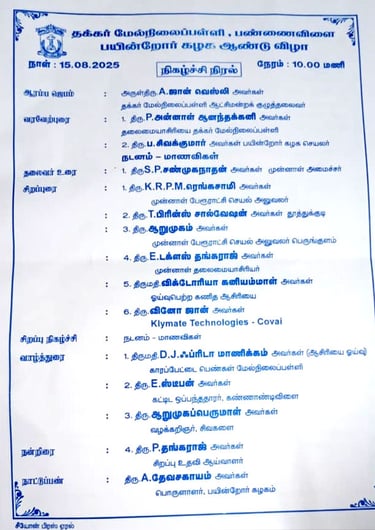 தக்கர் மேல்நிலைப்பள்ளி , பண்ணைவிளை
பயின்றோர் கழக ஆண்டு விழா
நாள் : 15.08.2025 நிகழ்ச்சி நிரல் நேரம் : 10.00 மணி
ஆரப்ப ஜெபம் : அருள்திரு.A.ஜான் வெஸ்லி அவர்கள்
தக்கர் மேல்நிலைப்பள்ளி ஆட்சிமன்றக் குழுத்தலைவர்
வரவேற்புரை : 1. திரு.P.அன்னாள் ஆனந்தக்கனி அவர்கள்
தலைமையாசிரியை தக்கர் மேல்நிலைப்பள்ளி
2. திரு.ப.சிவக்குமார் அவர்கள் பயின்றோர் கழக செயலர்
நடனம் – மாணவிகள்
தலைவர் உரை : 1 திரு.S.P.சண்முகநாதன் அவர்கள் முன்னாள் அமைச்சர்
சிறப்புரை : 1. திரு.K.R.P.M.ரெங்கசாமி அவர்கள்
முன்னாள் பேரூராட்சி செயல் அலுவலர்
2. திரு.T.பிரின்ஸ் சால்வேஷன் அவர்கள் தூத்துக்குடி
3. திரு.ஆறுமுகம் அவர்கள்
முன்னாள் பேரூராட்சி செயல் அலுவலர் பெருங்குளம்
4. திரு.E.டக்ளஸ் தங்கராஜ் அவர்கள்
முன்னாள் தலைமையாசிரியர்
5. திருமதி.விக்டோரியா கனியம்மாள் அவர்கள்
ஓய்வுபெற்ற கணித ஆசிரியை
6. திரு.வினோ ஜான் அவர்கள்
Klymate Technologies - Covai
சிறப்பு நிகழ்ச்சி : நடனம் - மாணவிகள்
வாழ்த்துரை : 1 திருமதி.D.J.ஃப்ரிடா மாணிக்கம் அவர்கள் (ஆசிரியை ஓய்வு)
காரப்பேட்டை பெண்கள் மேல்நிலைப்பள்ளி
2. திரு.E.ஸ்டீபன் அவர்கள்
கட்டிட ஒப்பந்ததாரர், கண்ணாண்டிவிளை
3. திரு.ஆறுமுகப்பெருமாள் அவர்கள்
வழக்கறிஞர், சிவகளை
நன்றிரை : 4. திரு.P.தங்கராஜ் அவர்கள்
சிறப்பு உதவி ஆய்வாளர்
நாட்டுப்பண் : திரு.A.தேவசகாயம் அவர்கள்
பொருளாளர், பயின்றோர் கழகம்
சீயோன் பிரஸ் ஏரல்